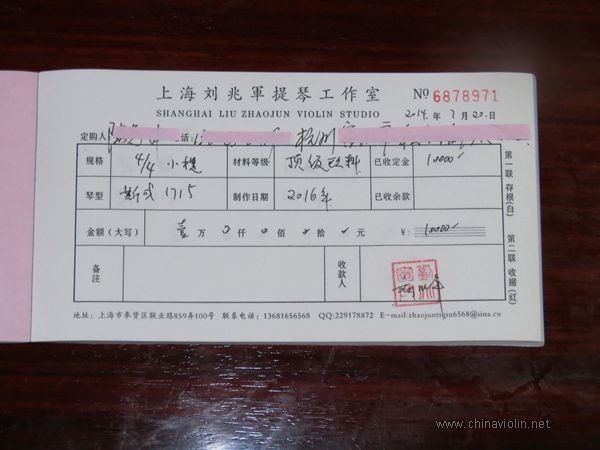 上海刘兆軍提琴工作室 № 6878971
SHANGHAI LIU ZHAOJUN VIOLIN STUDIO 2014.年 7月 20.日
定购人 话: 杭州
规格 4/4 小提 材料等级 顶级欧料 已收定金 10000
琴型 斯式 1715 制作日期 2016年 已收余款
金额（大写） 壹 万 0 仟 0 佰 0 拾 元 ¥: 10000
备注 收款人
第一联 存根(白) 第二联 收据(红)
地址：上海市奉贤区联业路859弄100号 联系电话：13681656568 QQ:229178872 E-mail:zhaojuntiqin6568@sina.cn
www.chinaviolin.net